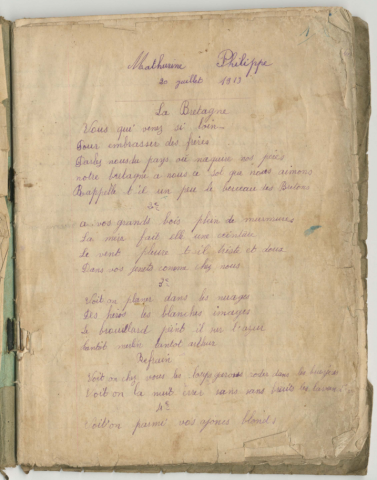 Mathurine Philippe
20 juillet 1913
La Bretagne
Vous qui venez si loin
Pour embrasser des frères
Parlez nous du pays où naquire nos pères
notre bretagne a nous le sol que nous aimons
Rappelle t'il un peu le berceau des Bretons
2e
a vos grands bois plein de murmures
La mer fait elle une
le vent pleure t-il triste et doux
Dans vos forêts comme chez nous
3e
Voit on planer dans les nuages
Des les blanches images
Le brouillard péret il sur l'azur
tantôt tantôt
Refrain
Voit on chez nous les large voler dans les
Voit on la nuit errer sans nos bruits
4e
Voit on parmi vos ajoncs blonds